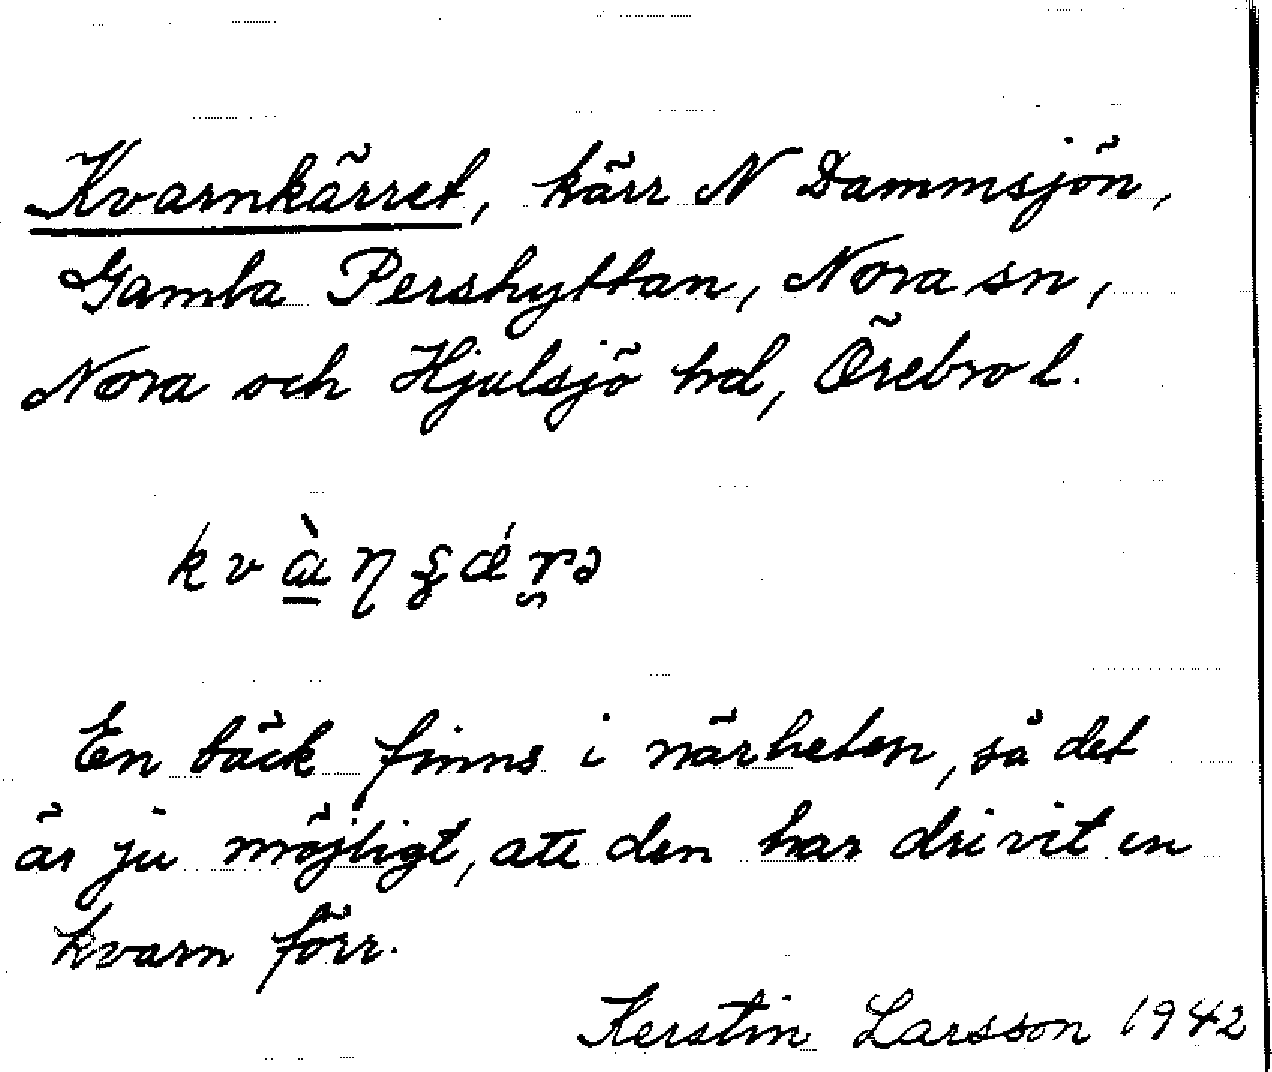 Kvarnkärret, kärr N Dammsjön,
Gamla Pershyttan, Nora sn,
Nora och Hjulsjö hd, Örebro l.
En bäck finns i närheten, så det
är ju möjligt, att den har drivit en
kvarn förr.
Kerstin Larsson 1942